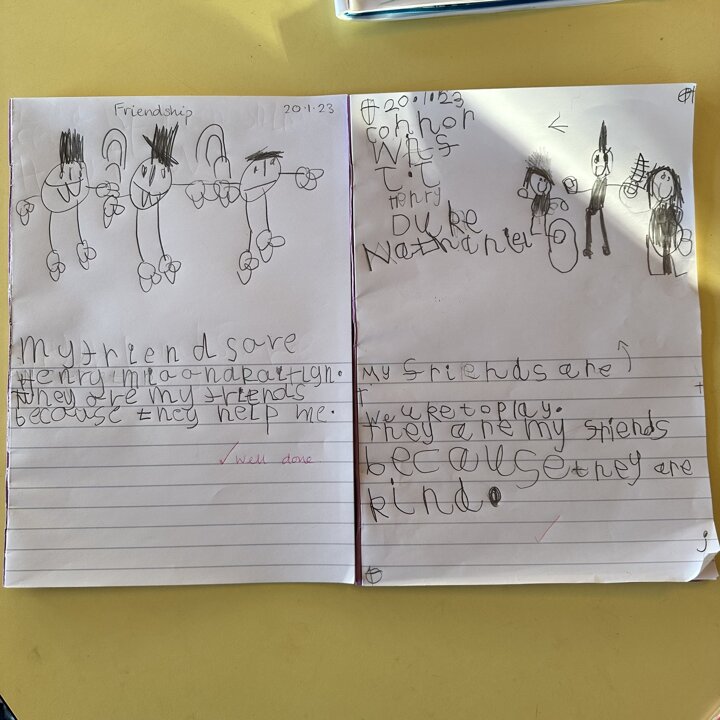 Friendship 20.1.23
my friends are
Henry mia and
They are my friends
because they help me.
well done
20.1.23
connor
Henry
Duke
Nathaniel
My friends are
We like to play.
they are my friends
because they are
kind.